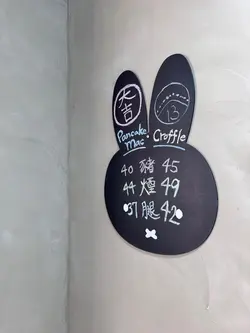 大吉 13
Pancake Mac · Croffle
40 豬 45
44 煙 49
37 腿 42